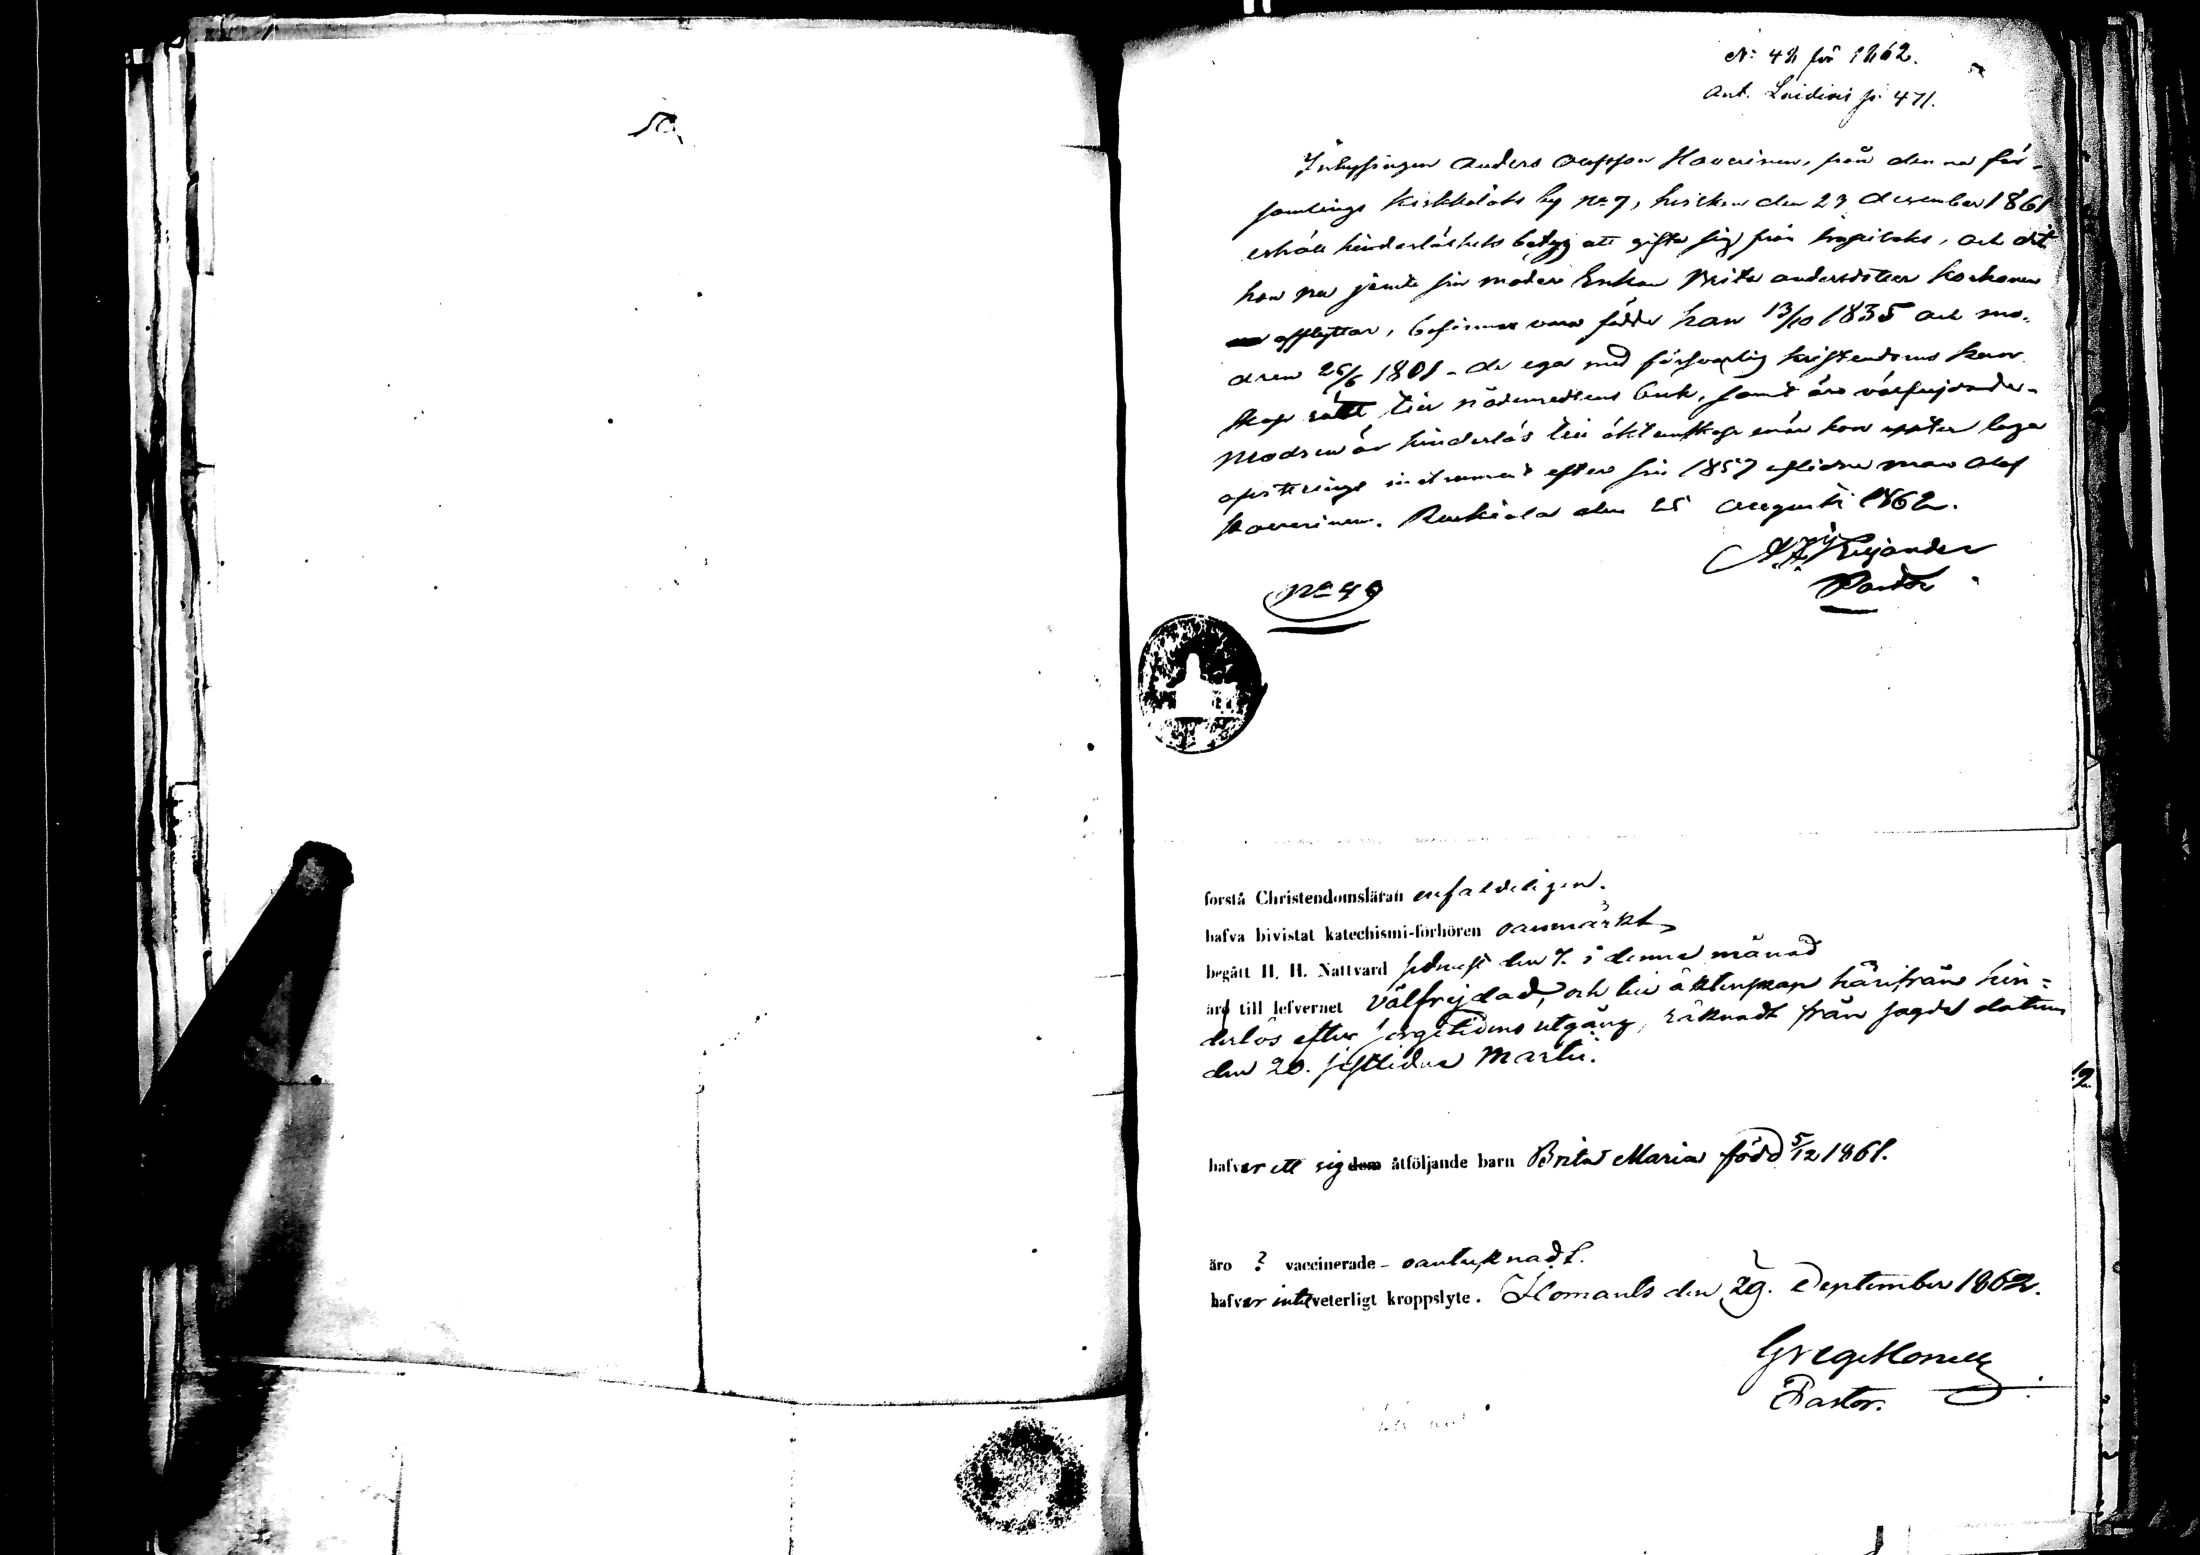 50.
N: 48 för 1862.
Ant. Loidiois p. 471.
Inhysingen Anders Olofsson Haverinen, från denna för-
samlings Kirkkolaks by No 7, hvilken den 23 december 1861
erhöll hinderlöshets betyg att gifta sig från Kopsilaks, och dit
han nu jemte sin moder Enkan Brita Andersdotter Korhonen
afflyttar, befinnes vara född han 13/10 1835 och mo-
dren 26/6 1801 - de ega med försvarlig kristendoms kun-
skap rätt till nådemedlens bruk, samt äro välfrejdade -
Modren är hinderlös till äktenskap enär hon upptar laga
afvittrings instrument efter sin 1857 aflidne man Olof
Haverinen. Ruskiala den 25 Augusti 1862.
Krejander
Pastor
No 49
forstå Christendomsläran enfaldeligen.
hafva bivistat katechismi-förhören oanmärkt
begått H. H. Nattvard sednast den 7. i denna månad
äro till lefvernet välfrejdad, och till äktenskap härifrån hin=
derlös efter sorgetidens utgång, räknadt från sagde datum
den 20. sistlidne Martii.
hafver ett sig dem åtföljande barn Brita Maria född 5/12 1861.
äro ? vaccinerade - oantecknadt.
hafver intet veterligt kroppslyte. Ilomants den 29. September 1862.
Pastor.